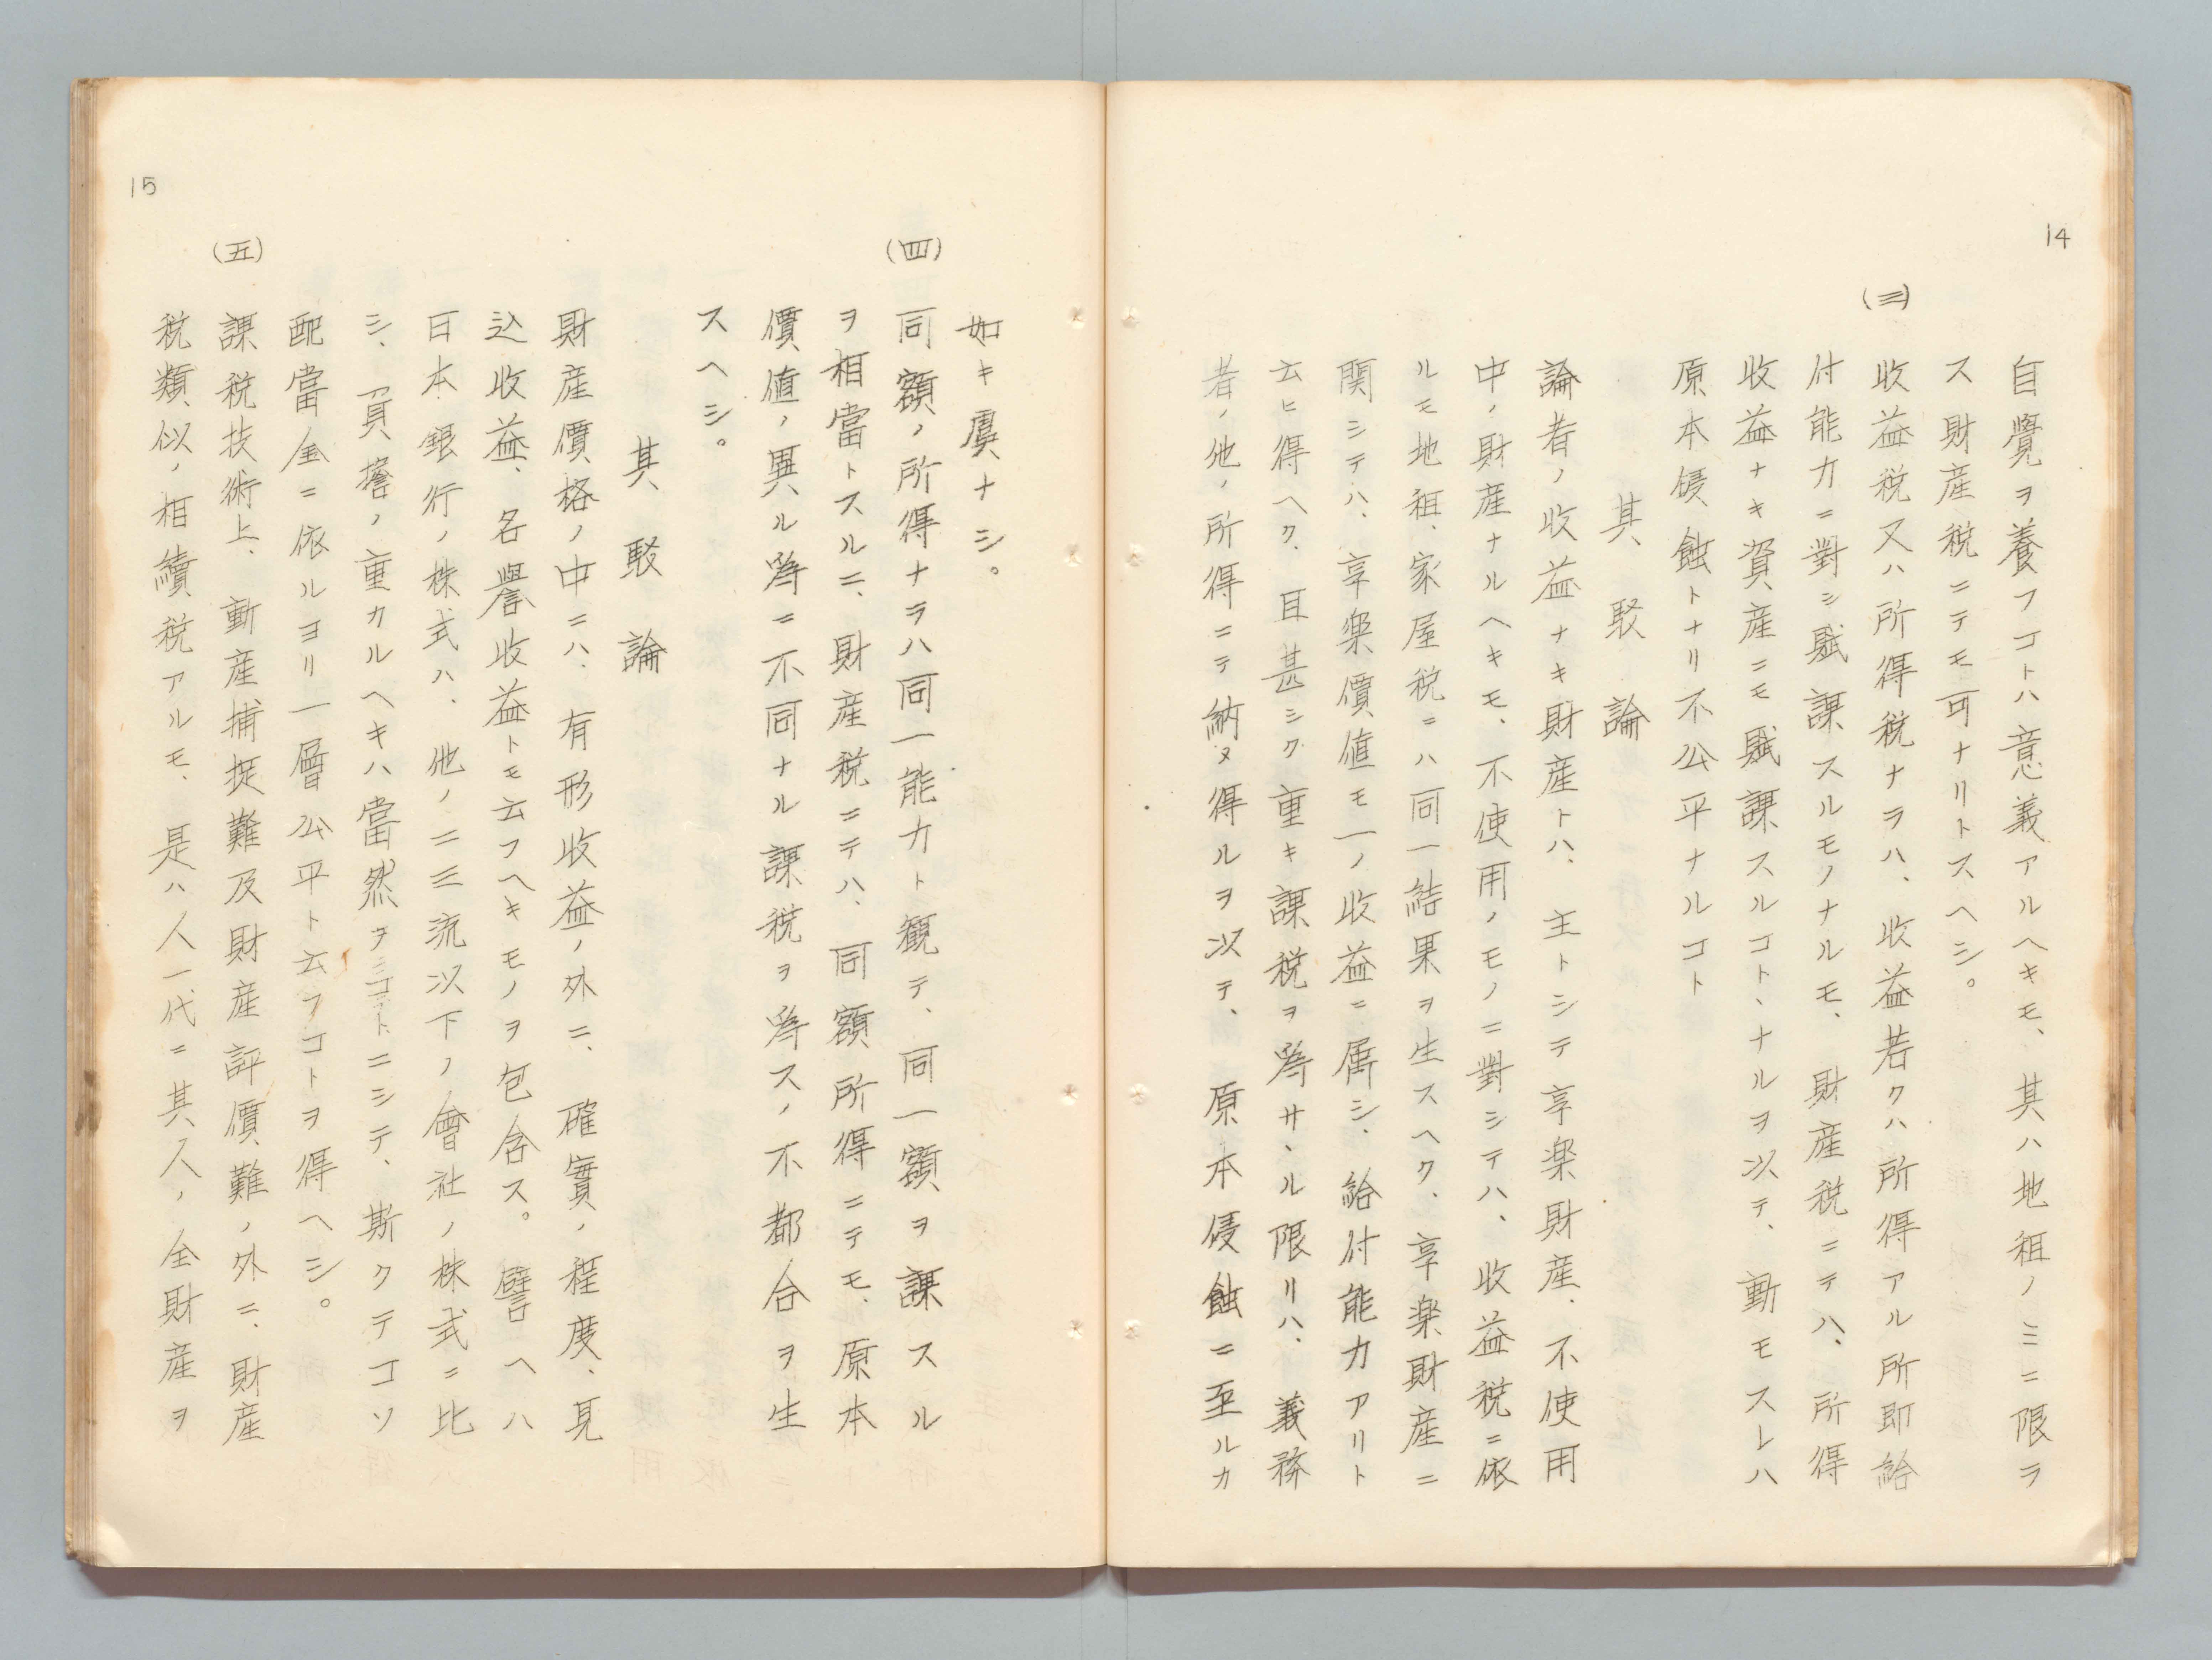 14
自覺ヲ養フコトハ意義アルヘキモ、其ハ地租ノミニ限ラ
ス財産税ニテモ可ナリトスヘシ。
(三)
收益税又ハ所得税ナラハ、收益若クハ所得アル所即給
付能力ニ對シ賦課スルモノナルモ、財産税ニテハ、所得
收益ナキ資産ニモ賦課スルコトヽナルヲ以テ、動モスレハ
原本侵蝕トナリ不公平ナルコト
其駁論
論者ノ收益ナキ財産トハ、主トシテ享楽財産、不使用
中ノ財産ナルヘキモ、不使用ノモノニ對シテハ、收益税ニ依
ルモ地租、家屋税ニハ同一結果ヲ生スヘク、享楽財産ニ
関シテハ、享楽價値モ一ノ收益ニ属シ、給付能力アリト
云ヒ得ヘク、且甚シク重キ課税ヲ為サヽル限リハ、義務
者ノ他ノ所得ニテ納メ得ルヲ以テ、原本侵蝕ニ至ルカ
如キ虞ナシ。
(四)
同額ノ所得ナラハ同一能力ト観テ、同一額ヲ課スル
ヲ相當トスルニ、財産税ニテハ、同額所得ニテモ、原本
價値ノ異ル為ニ不同ナル課税ヲ為スノ不都合ヲ生
スヘシ。
其駁論
財産價格ノ中ニハ、有形收益ノ外ニ、確實ノ程度、見
込收益、名譽收益トモ云フヘキモノヲ包含ス。譬ヘハ
日本銀行ノ株式ハ、他ノ二三流以下ノ會社ノ株式ニ比
シ、負擔ノ重カルヘキハ當然ノコトニシテ、斯クテコソ
配當金ニ依ルヨリ一層公平ト云フコトヲ得ヘシ。
(五)
課税技術上、動産捕捉難及財産評價難ノ外ニ、財産
税類似ノ相續税アルモ、是ハ人一代ニ其人ノ全財産ヲ
15